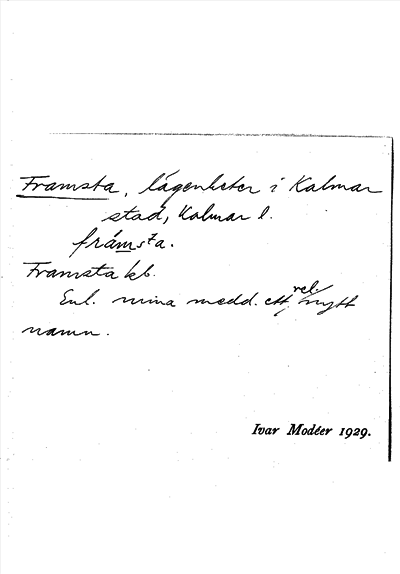 Framsta, lägenheter i Kalmar
stad, Kalmar l.
framsta.
Framsta kb.
Enl. mina medd. ett rel. nytt
namn.
Ivar Modéer 1929.